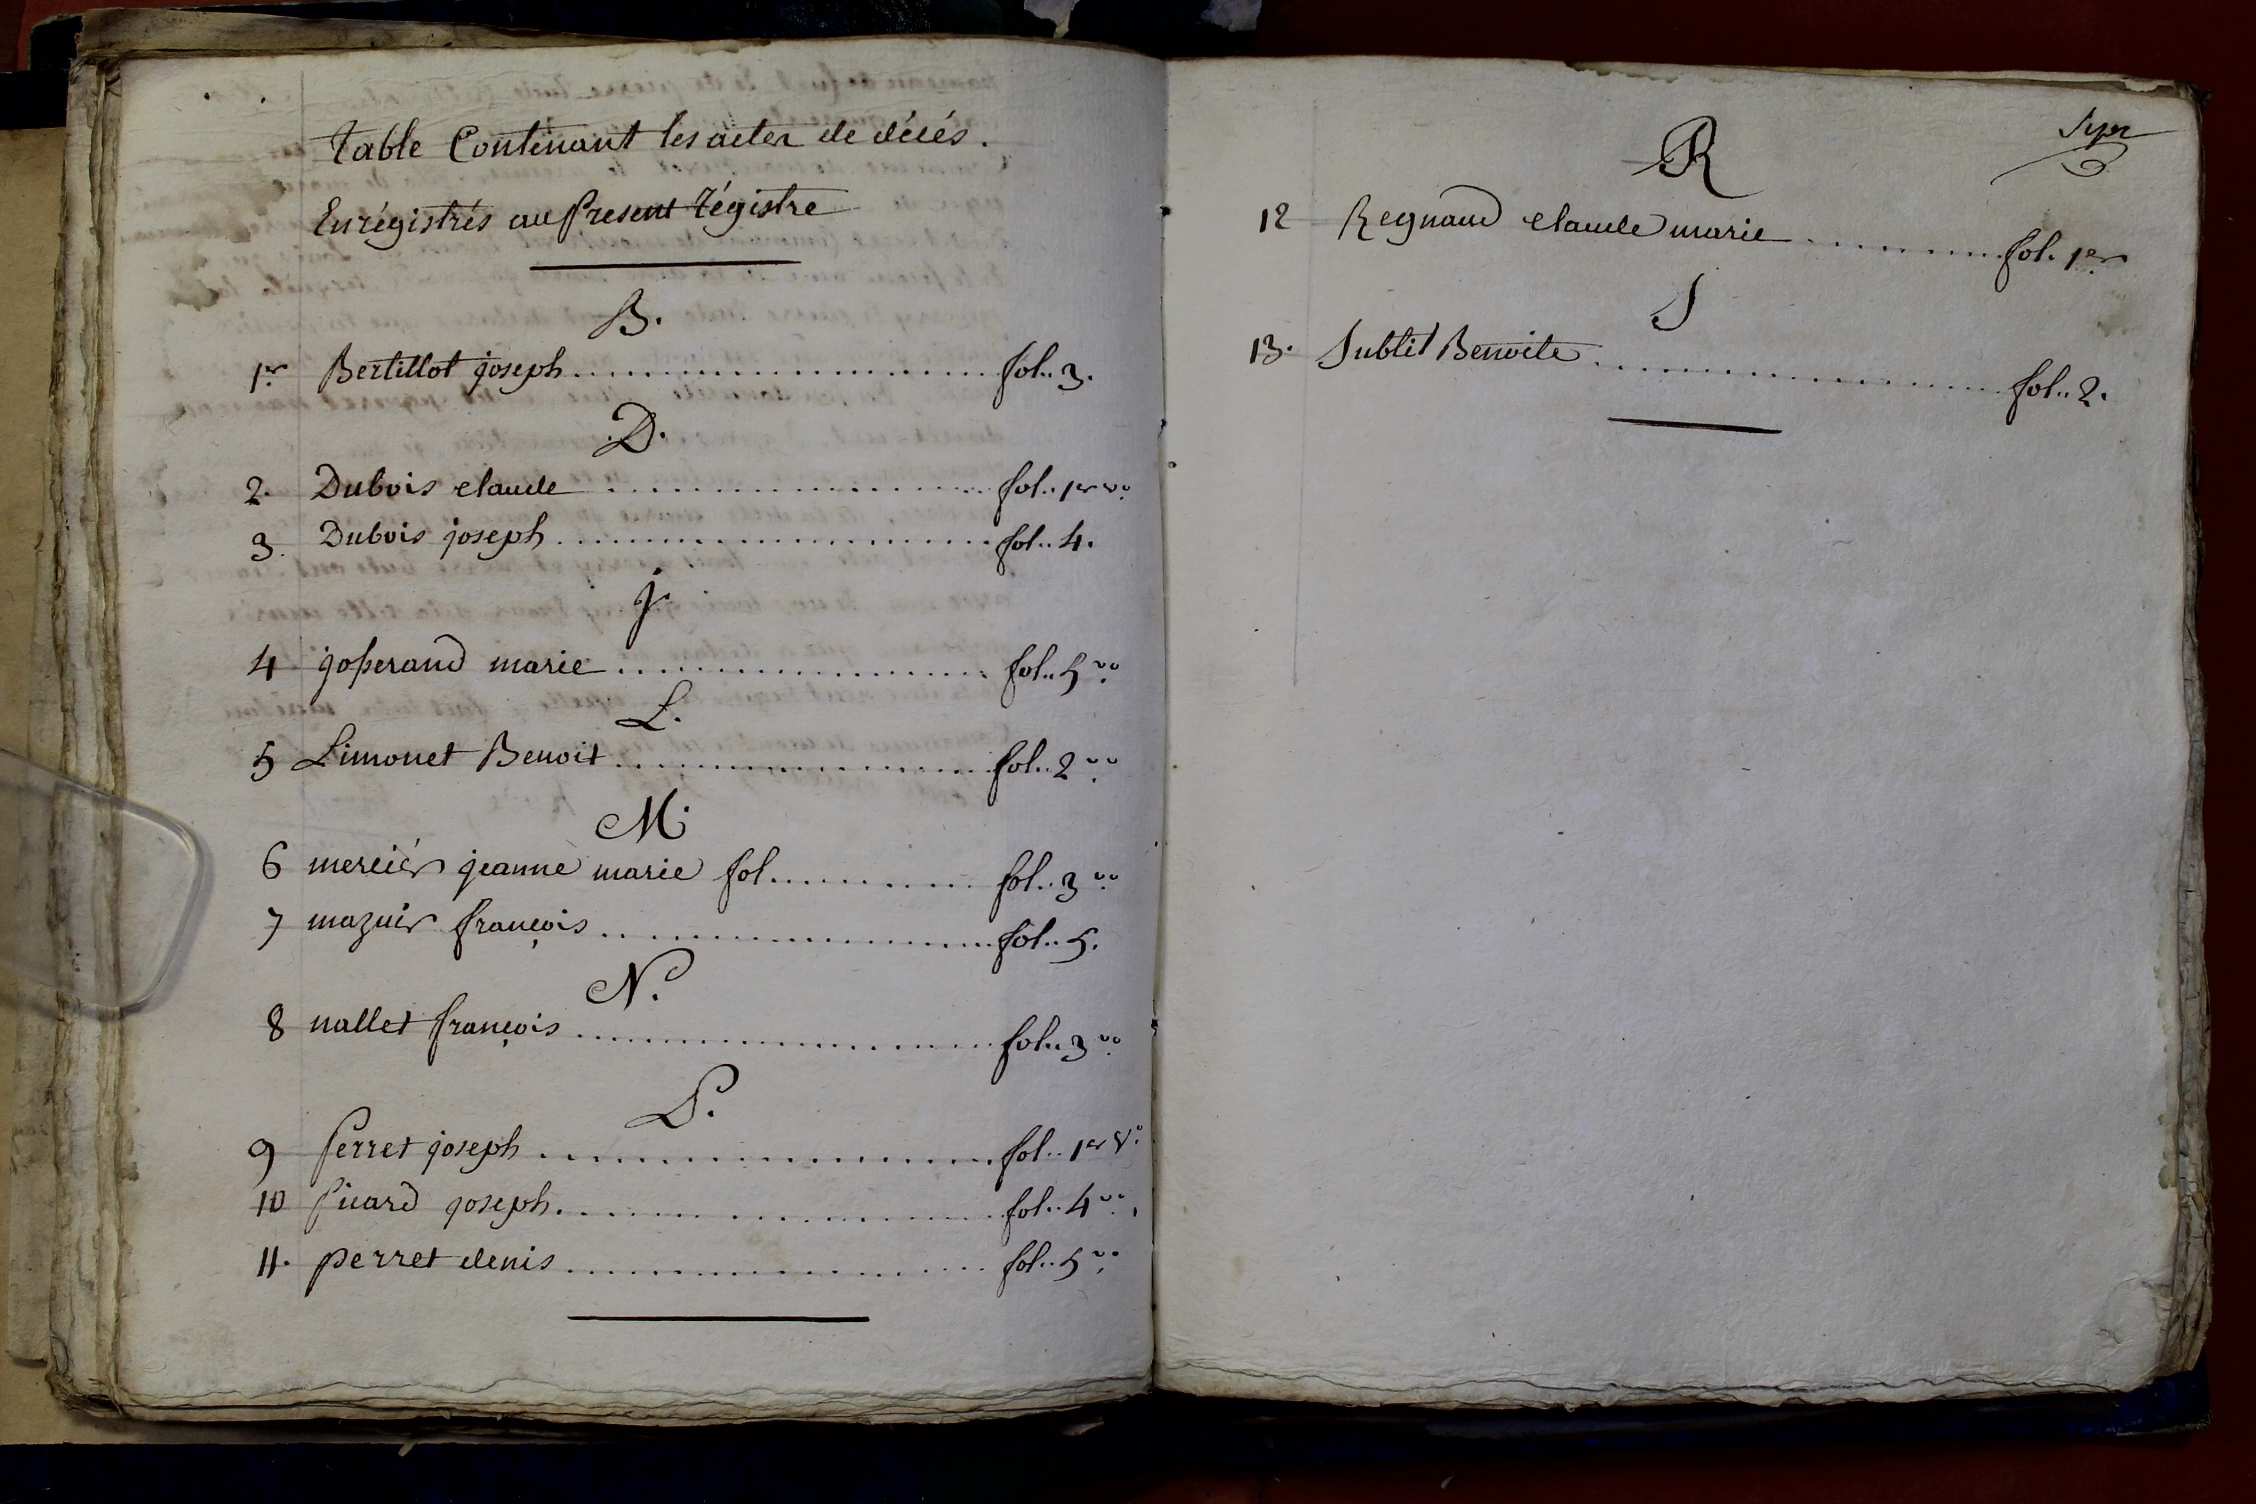 Table Contenant les actes de décés.
Enrégistrés au Present régistre
B.
1er Bertillot joseph .................... fol.. 3.
.D.
2. Dubois claude .................... fol.. 1er vo
3. Dubois joseph .................... fol.. 4.
j
4 josserand marie .................... fol.. 5 vo
L.
5 Limonet Benoit .................... fol.. 2 vo
M.
6 merciér jeanne marie fol........... fol.. 3 vo
7 mazuir françois .................... fol.. 5.
N.
8 nallet françois .................... fol.. 3 vo
P.
9 Perret joseph .................... fol.. 1er Vo
10 Picard joseph .................... fol.. 4 vo
11. perret denis .................... fol.. 5 vo
R
12 Regnaud claude marie .......... fol. 1er
S
13. Subtil Benoite .................... fol.. 2.